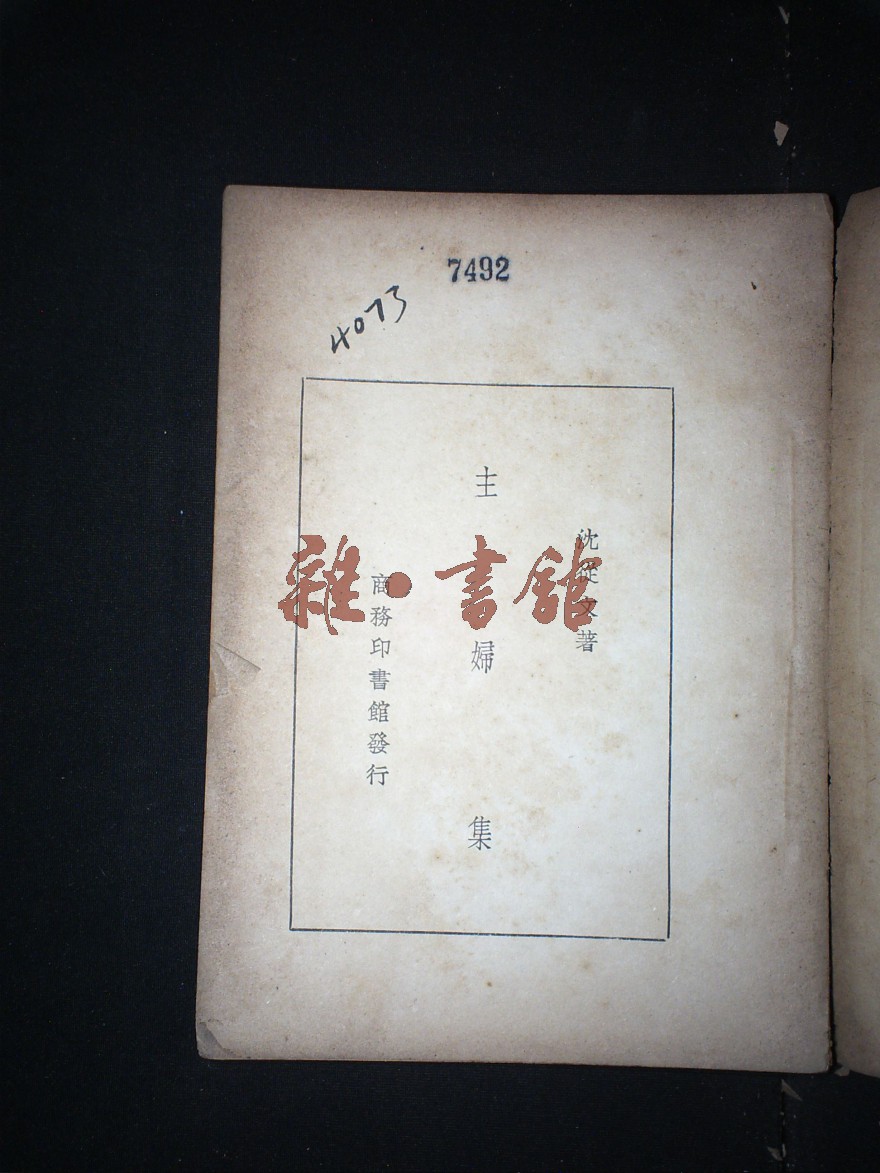 7492
4073
沈從文著
主婦集
商務印書館發行
雜·書館